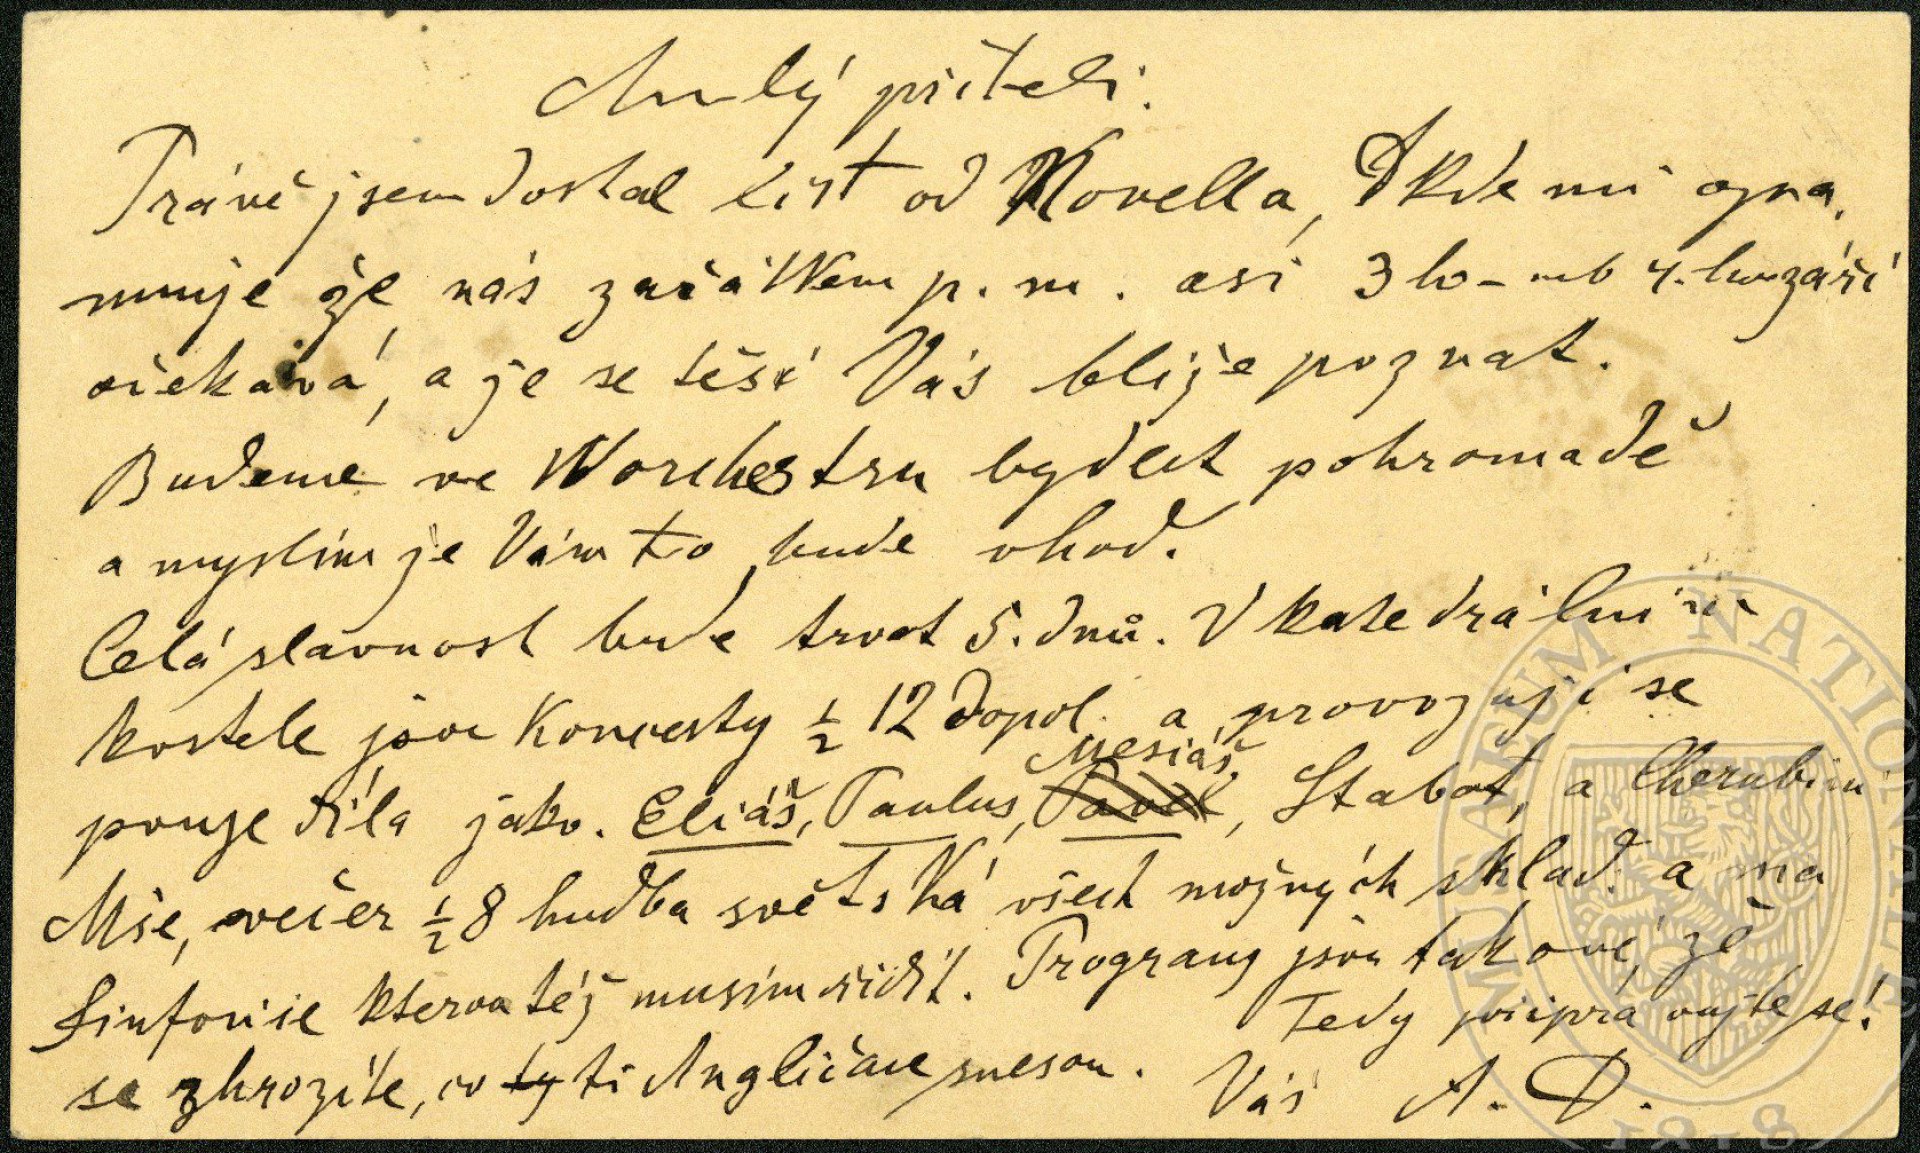 Milý příteli.
Právě jsem dostal list od Novella, kde mi ozna,
muje že nás začátkem p. m. asi 3ho – neb 4. ho září
očekává, a že se těší Vás blíže poznat.
Budeme ve Worchestru bydlet pohromadě
a myslím že Vám to bude vhod.
Celá slavnost bude trvat 5. dnů. V katedrálním
kostele jsou Koncerty ½ 12 dopol. a provozují se
pouze díla jako. Eliáš, Paulus, Mesiáš, Pavel, Stabat, a Cherubini
Mše, večer ½ 8 hudba světská všech možných sklad. a má
Sinfonie kterou též musím řídit. Programy jsou takové, že
se zhrozíte, co ty ti Angličané snesou. Tedy připravujte se!
Váš A. D.
MUSAEUM NATIONALE
1818